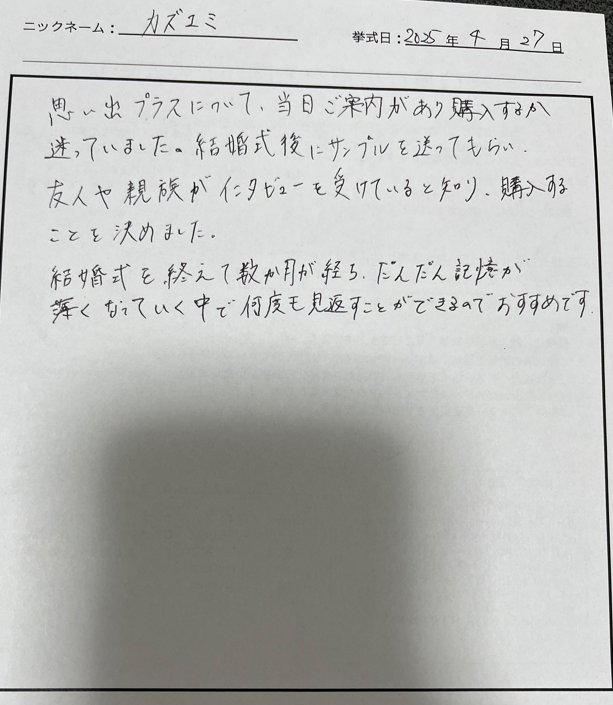 ニックネーム：カズエミ
挙式日：2025年4月27日
思い出プラスについて、当日ご案内があり購入するか
迷っていました。結婚式後にサンプルを送ってもらい、
友人や親族がインタビューを受けていると知り、購入する
ことを決めました。
結婚式を終えて数か月が経ち、だんだん記憶が
薄くなっていく中で何度も見返すことができるのでおすすめです。